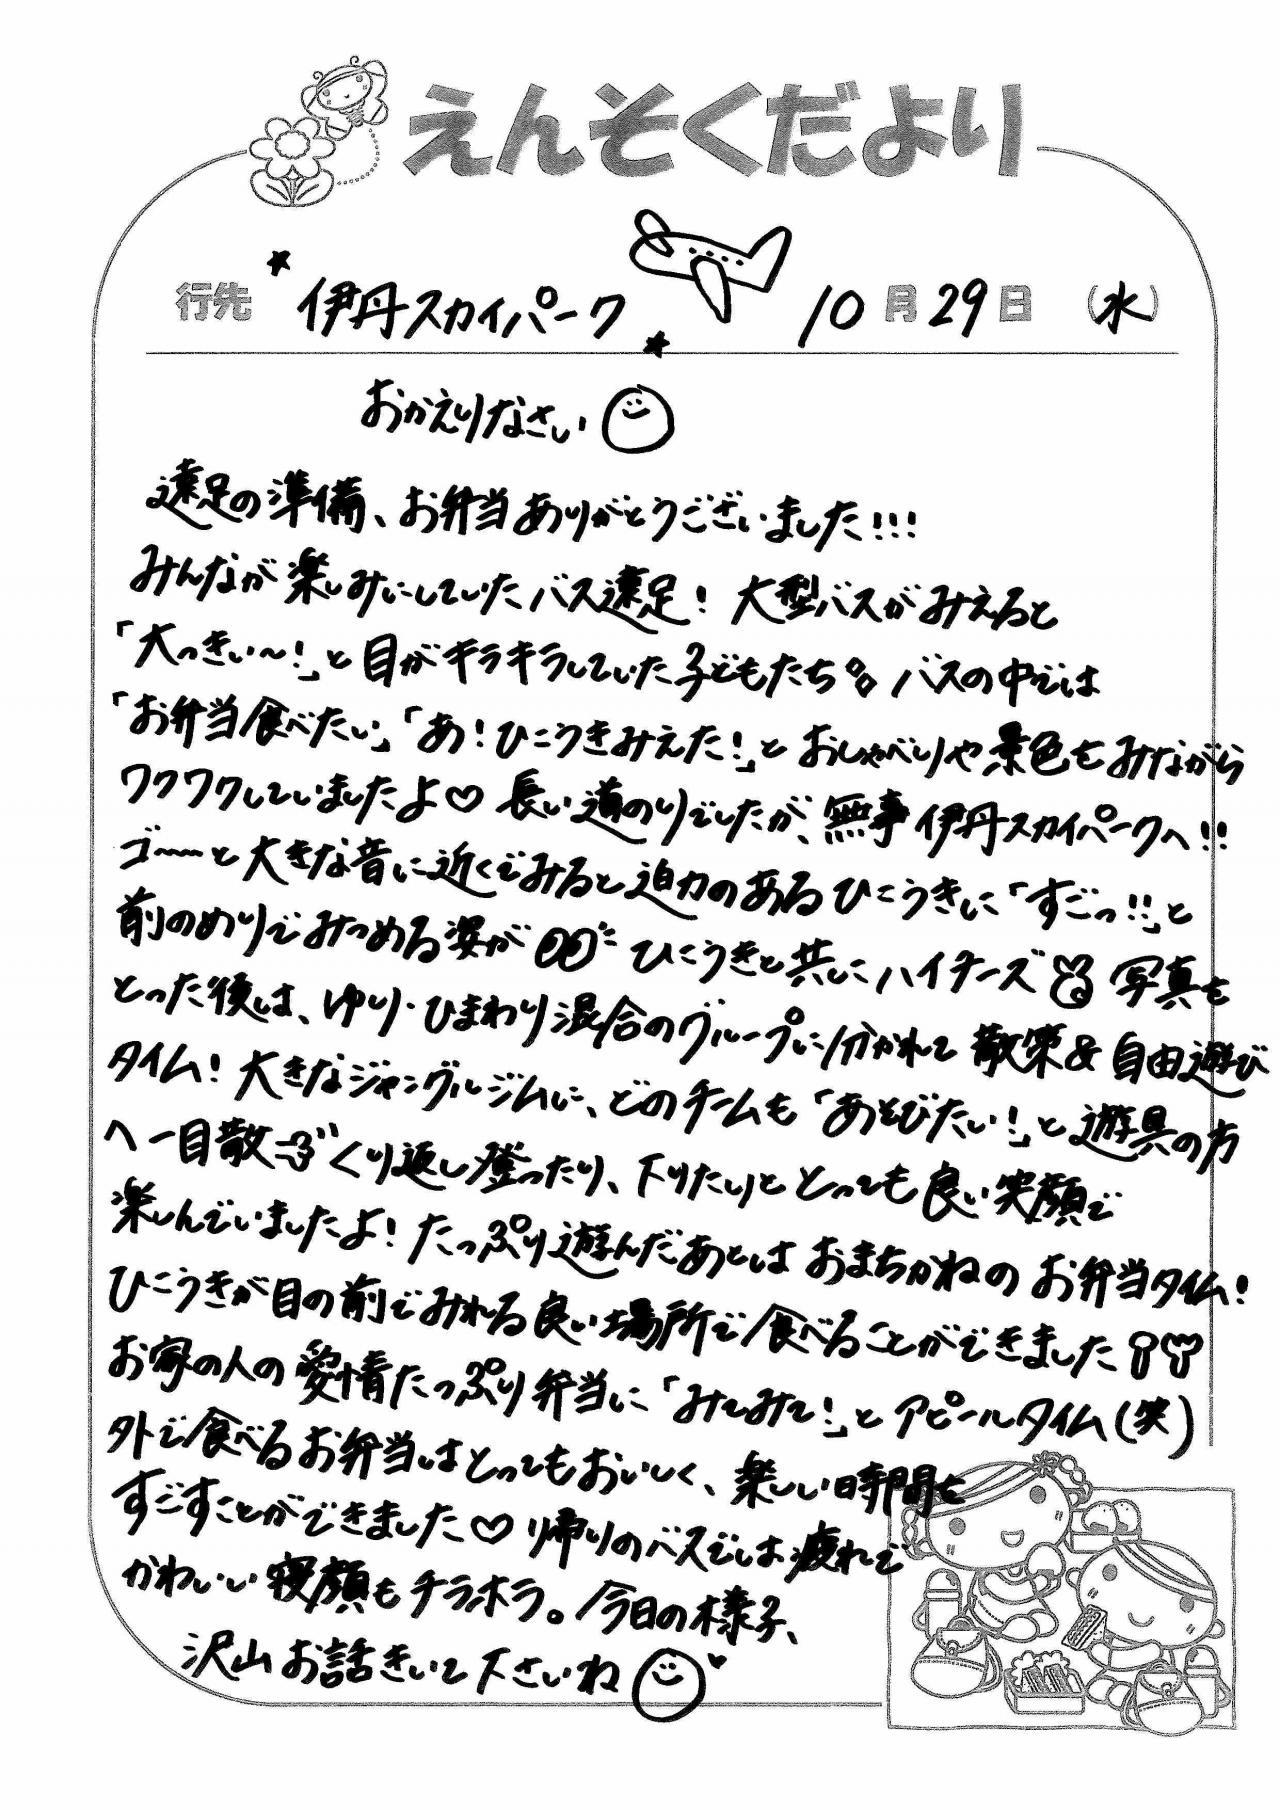 えんそくだより
行先 伊丹スカイパーク 10月29日(水)
おかえりなさい
遠足の準備、お弁当ありがとうございました!!!
みんなが楽しみにしていたバス遠足! 大型バスがみえると
「大っきい〜!」と目がキラキラしていた子どもたち。バスの中では
「お弁当食べたい」「あ!ひこうきみえた!」とおしゃべりや景色をみながら
ワクワクしていましたよ♡ 長い道のりでしたが、無事伊丹スカイパークへ!!
ゴーーと大きな音に近くでみると迫力のあるひこうきに「すごっ!!」と
前のめりでみつめる姿が ひこうきと共にハイチーズ 写真を
とった後は、ゆり・ひまわり混合のグループに分かれて散策&自由遊び
タイム! 大きなジャングルジムに、どのチームも「あそびたい!」と遊具の方
へ一目散 くり返し登ったり、下りたりととっても良い笑顔で
楽しんでいましたよ! たっぷり遊んだあとはおまちかねのお弁当タイム!
ひこうきが目の前でみれる良い場所で食べることができました
お家の人の愛情たっぷり弁当に「みてみて!」とアピールタイム(笑)
外で食べるお弁当はとってもおいしく、楽しい時間を
すごすことができました♡ 帰りのバスでは疲れて
かわいい寝顔もチラホラ。今日の様子、
沢山お話きいて下さいね